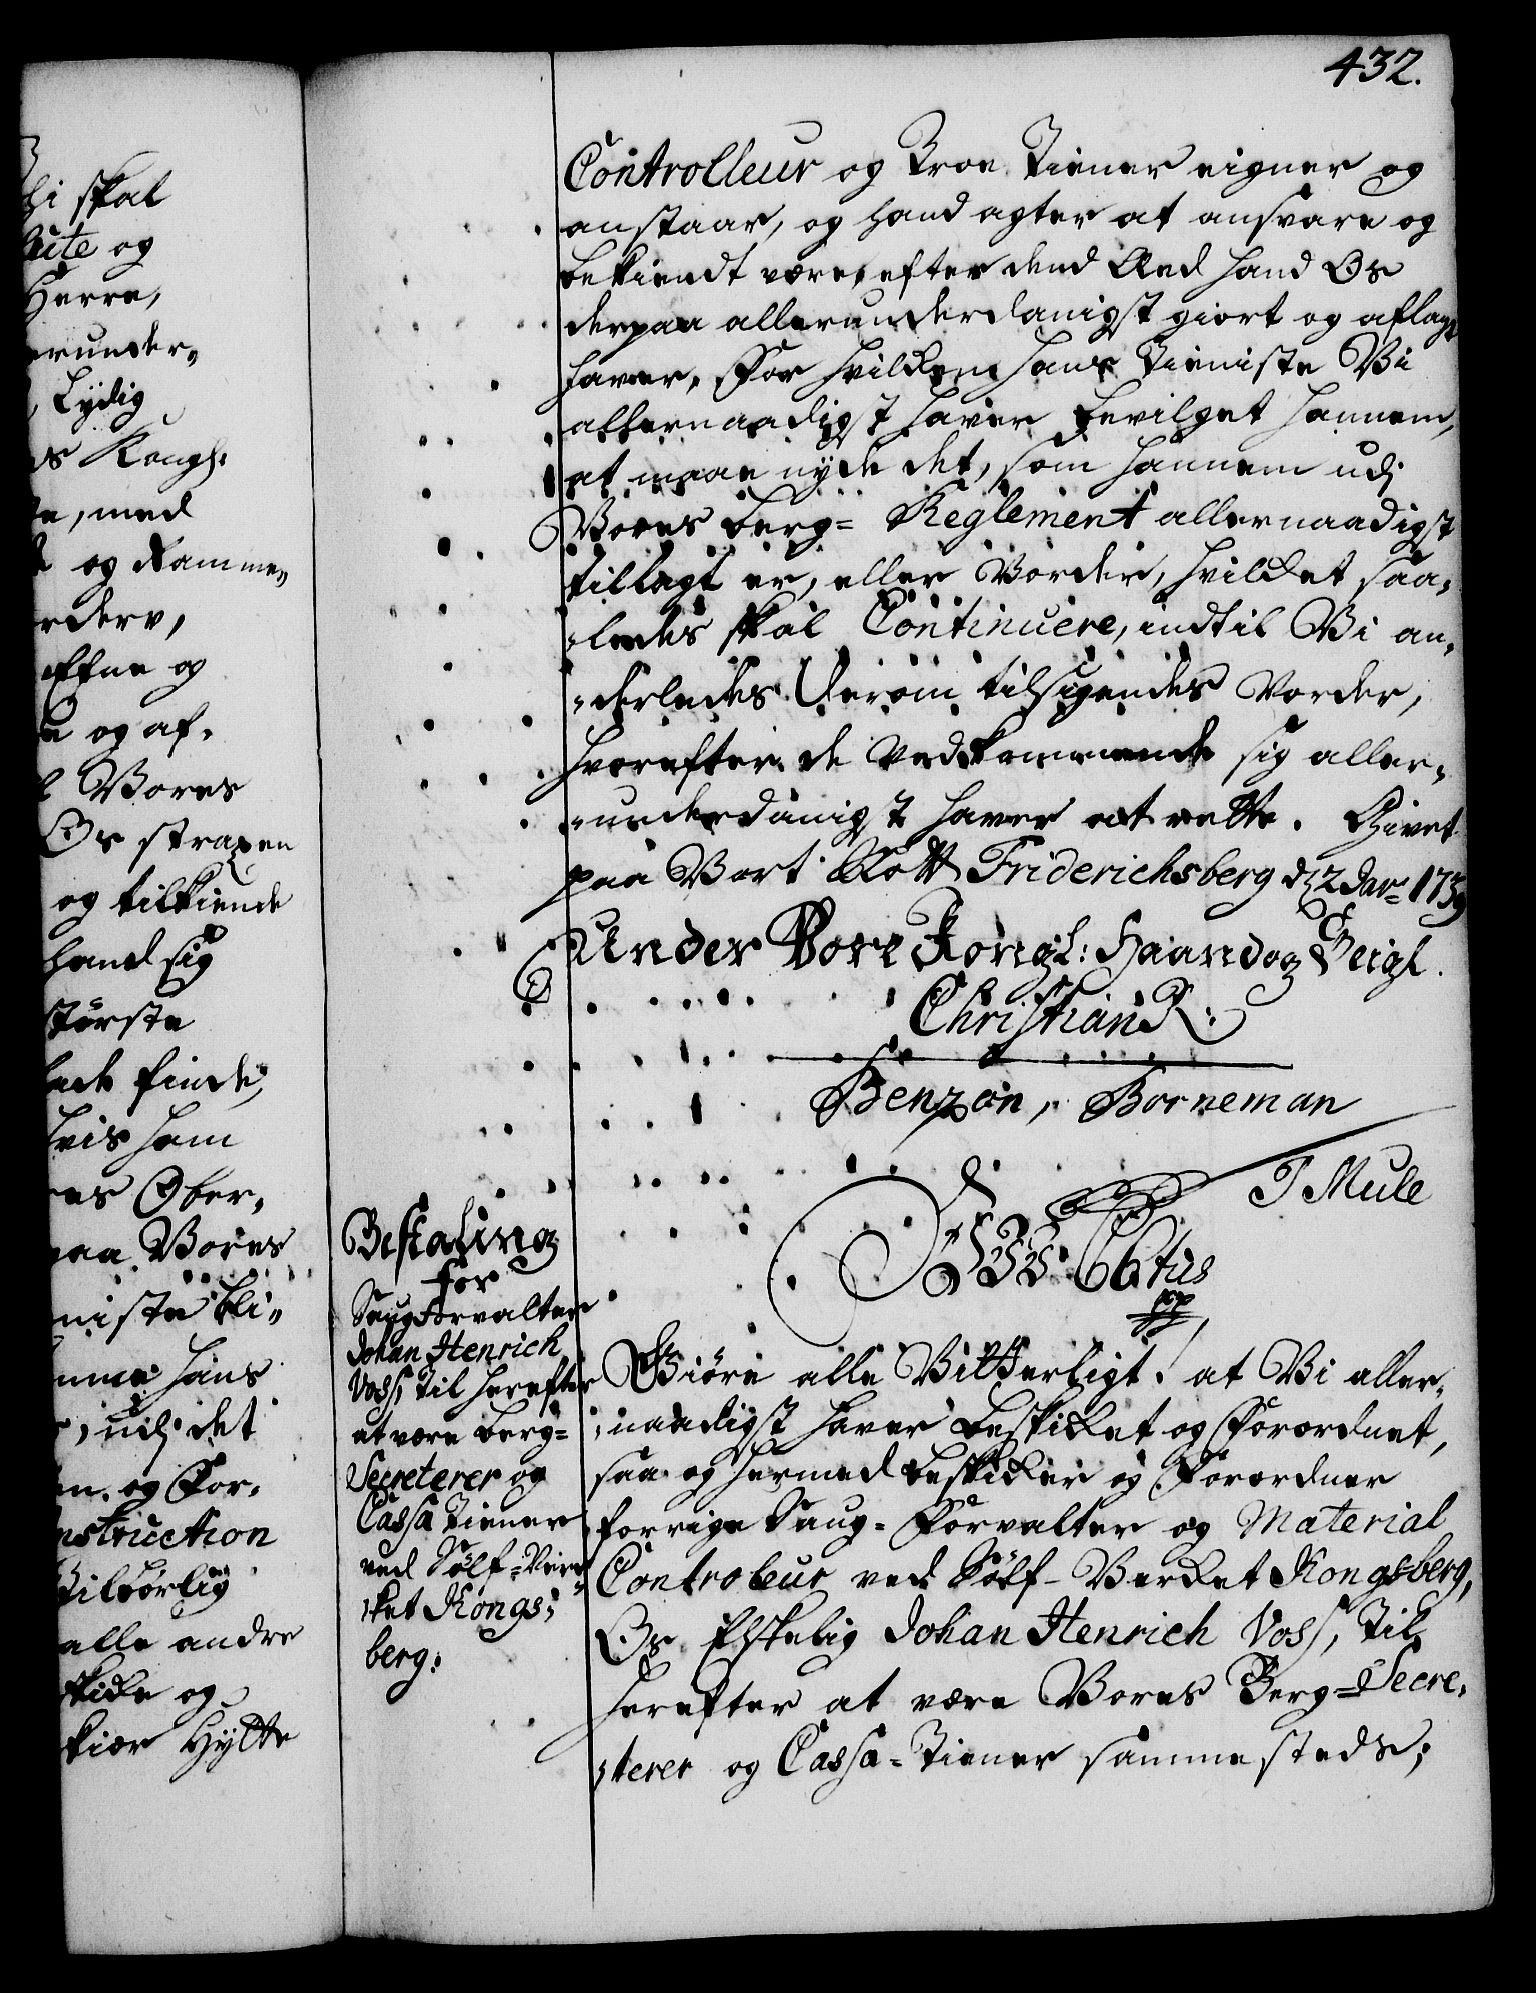 432.
Controlleur og Troe Tiener eigner og
anstaar, og hand agter at ansvare og
bekiendt være, efter dend Æed hand Os
derpaa allerunderdanigst giort og aflagt
haver, For hvilken hans Tieniste Vi
allernaadigst haver bevilget hannem,
at maae nyde det, som hannem udj
Vores berg= Reglement allernaadigst
tillagt er, eller Vorder, hvilket saa„
„ledes skal Continuere, indtil Vi an„
„derledes derom tilsigendes Vorder,
hvorefter de Vedkommende sig aller„
„underdanigst haver at rette. Givet
paa Vort Slott Friderichsberg d 2 Jan: 1739
Under Vore Kongl: Haand og Zeigl.
Christian R:
Benzon, Borneman
J Mule
Bestaling
for
Saug Forvalter
Johan Henrich
Voss, til herefter
at være berg=
Secreterer og
Cassa Tiener
ved Sølf=Ver„
„ket Kongs„
berg:
C 6tus
Giøre alle Vitterligt. at Vi aller„
„naadigst haver beskiket og Forordnet,
saa og hermed beskiker og Forordner
forrige Saug= Forvalter og Material
Controleur ved Sølf- Verket Kongsberg,
Os Elskelig Johan Henrich Voss, til
herefter at være Vores Berg=Secre„
„terer og Cassa=Tiener sammesteds;
hi skal
og
Herre,
erunder„
, Lydig
Kongl:
, med
og Ramme„
Efne og
og af„
Vores
Os straxen
og tilkiende
hand sig
største
finde,
hvis ham
Ober„
paa Vores
niste bli„
hans
, udj det
og For„
nstruction
alle andre
og
Hytte